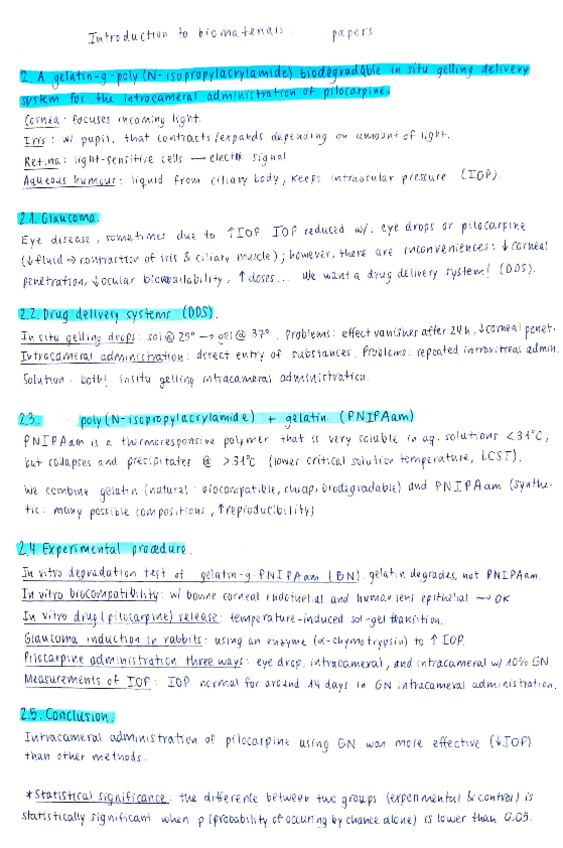 Introduction to biomaterials: papers
2. A gelatin-g-poly(N-isopropylacrylamide) biodegradable in situ gelling delivery
system for the intracameral administration of pilocarpine.
Cornea: focuses incoming light.
Iris: w/ pupil, that contracts/expands depending on amount of light.
Retina: light-sensitive cells → electric signal
Aqueous humour: liquid from ciliary body, keeps intraocular pressure (IOP).
2.1. Glaucoma.
Eye disease, sometimes due to ↑IOP. IOP reduced w/: eye drops or pilocarpine
(↓fluid → contraction of iris & ciliary muscle); however, there are inconveniences: ↓corneal
penetration, ↓ocular bioavailability, ↑doses... We want a drug delivery system! (DDS).
2.2. Drug delivery systems (DDS).
In situ gelling drops: sol @ 25° → gel @ 37°. Problems: effect vanishes after 24h, ↓corneal penet.
Intracameral administration: direct entry of substances. Problems: repeated intravitreal admin.
Solution: both! insitu gelling intracameral administration.
2.3. poly(N-isopropylacrylamide) + gelatin (PNIPAam)
PNIPAam is a thermoresponsive polymer that is very soluble in aq. solutions <31°C,
but collapses and precipitates @ >31°C (lower critical solution temperature, LCST).
We combine gelatin (natural: biocompatible, cheap, biodegradable) and PNIPAam (synthe-
tic: many possible compositions, ↑reproducibility)
2.4 Experimental procedure.
In vitro degradation test of gelatin-g-PNIPAam (GN): gelatin degrades, not PNIPAam
In vitro biocompatibility: w/ bovine corneal endothelial and human lens epithelial → OK
In vitro drug (pilocarpine) release: temperature-induced sol-gel transition.
Glaucoma induction in rabbits: using an enzyme (α-chymotrypsin) to ↑ IOP.
Pilocarpine administration three ways: eye drop, intracameral, and intracameral w/ 10% GN
Measurements of IOP: IOP normal for around 14 days in GN intracameral administration.
2.5. Conclusion.
Intracameral administration of pilocarpine using GN was more effective (↓IOP)
than other methods.
*Statistical significance: the difference between two groups (experimental & control) is
statistically significant when p (probability of occuring by chance alone) is lower than 0.05.